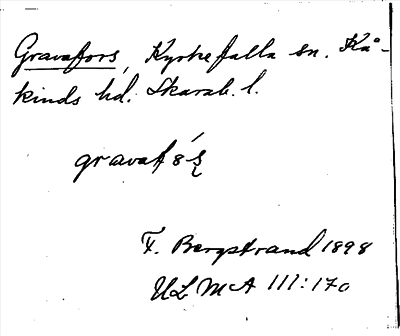 Gravafors, Kyrkefalla sn. Kå-
kinds hd. Skarab. l.
F. Bergstrand 1898
ULMA 111:170